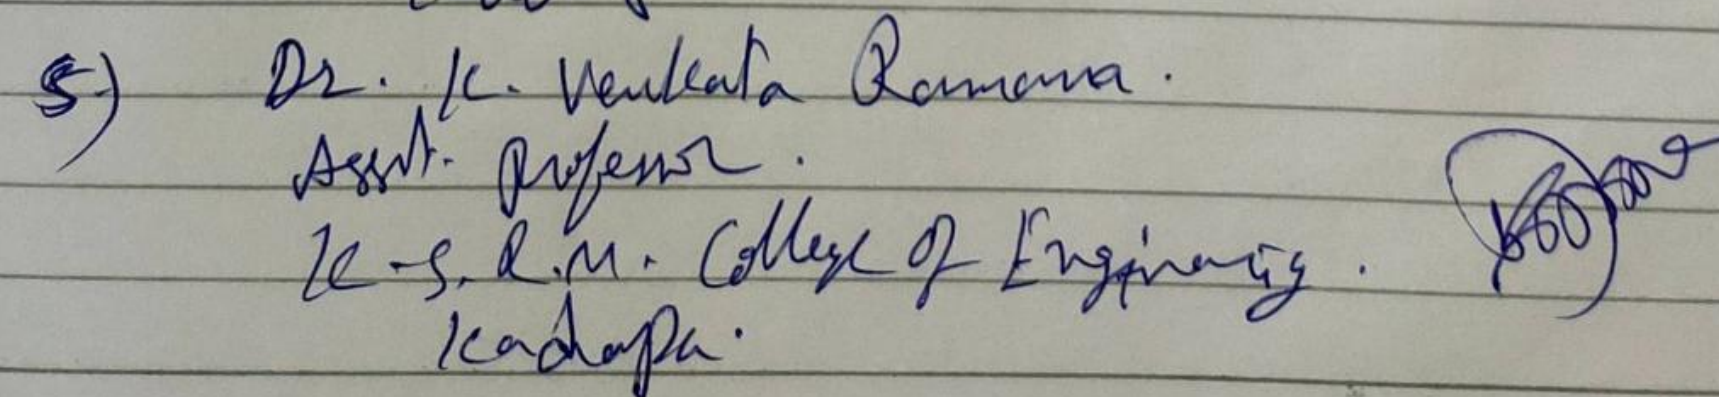 5) Dr. K. Venkata Ramana.
Asst. Professor.
K.S.R.M. College of Engineering.
Kadapa.